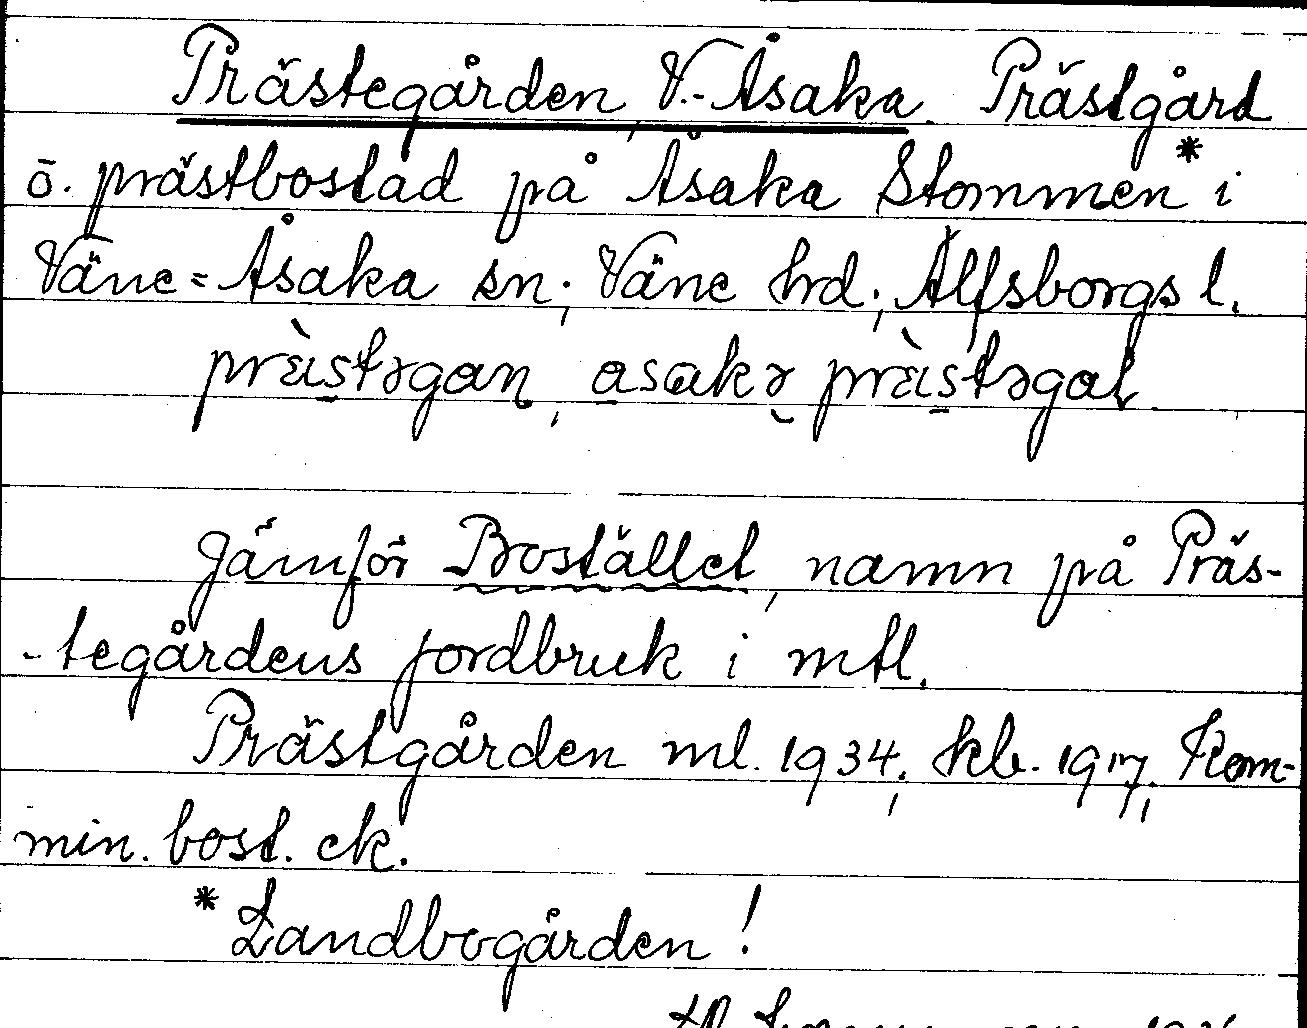 Prästegården, V.-Åsaka. Prästgård
o. prästbostad på Åsaka Stommen* i
Väne-Åsaka sn; Väne hrd; Älfsborgs l.
Jämför Bostället, namn på Präs-
-tegårdens jordbruk i mtl.
Prästgården ml. 1934; kb. 1917; Kom-
min. bost. ek.
*Landbogården!